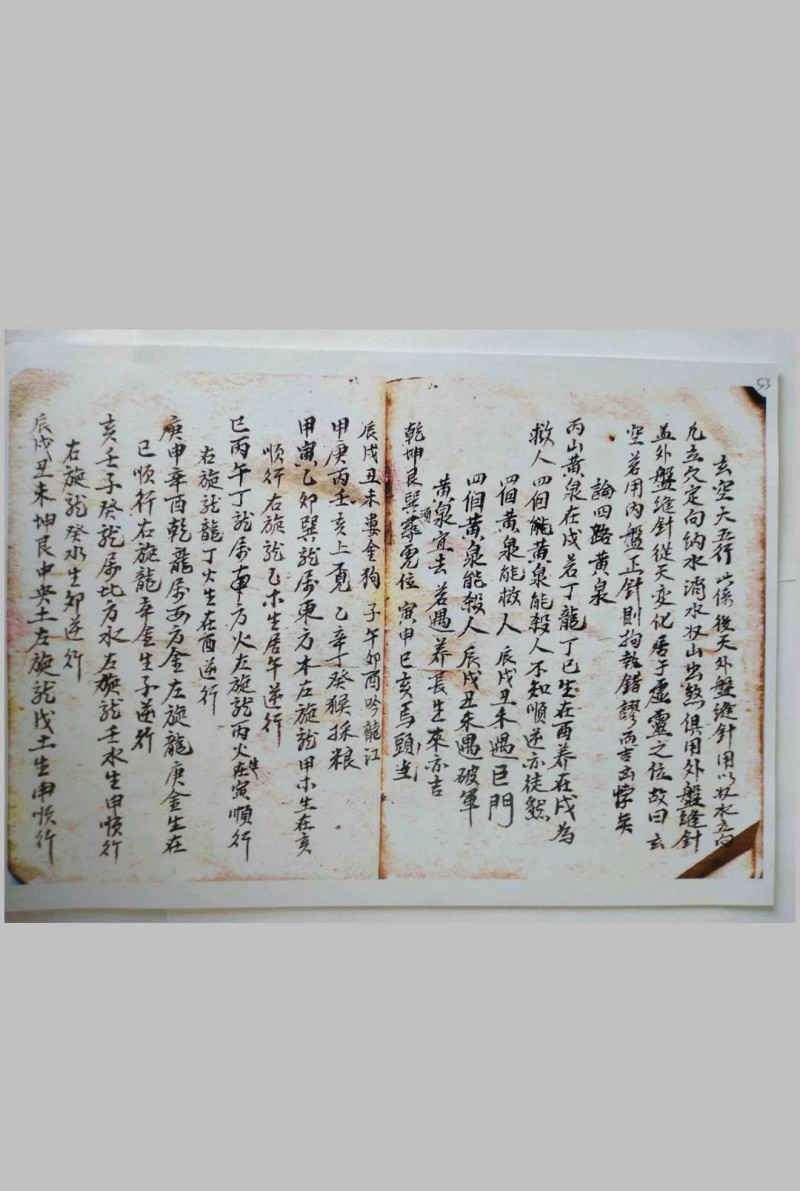 53
玄空大五行 此係後天外盤縫針用以收水立向
凡立穴定向納水消水收山出煞俱用外盤縫針
盖外盤縫針從天變化居于虛靈之位故曰玄
空若用內盤正針則拘執錯謬而吉凶悖矣
論四路黃泉
丙山黃泉在戌若丁龍丁巳生在酉養在戌為
救人四個能黃泉能殺人不知順逆亦徒然
四個黃泉能救人 辰戌丑未遇巨門
四個黃泉能殺人 辰戌丑未遇破軍
黃泉宜去 若遇養長生來亦吉
乾坤艮巽須尋位 寅申巳亥馬頭當
辰戌丑未婁金狗 子午卯酉吟龍江
甲庚丙壬亥上覓 乙辛丁癸猴採粮
甲寅乙卯巽龍属東方木左旋龍甲木生在亥
順行右旋龍乙木生居午逆行
巳丙午丁龍属南方火左旋龍丙火生在寅順行
右旋龍龍丁火生在酉逆行
庚申辛酉乾龍属西方金左旋龍庚金生在
巳順行右旋龍辛金生子逆行
亥壬子癸龍属北方水左旋龍壬水生申順行
右旋龍癸水生卯逆行
辰戌丑未坤艮中央土左旋龍戊土生申順行